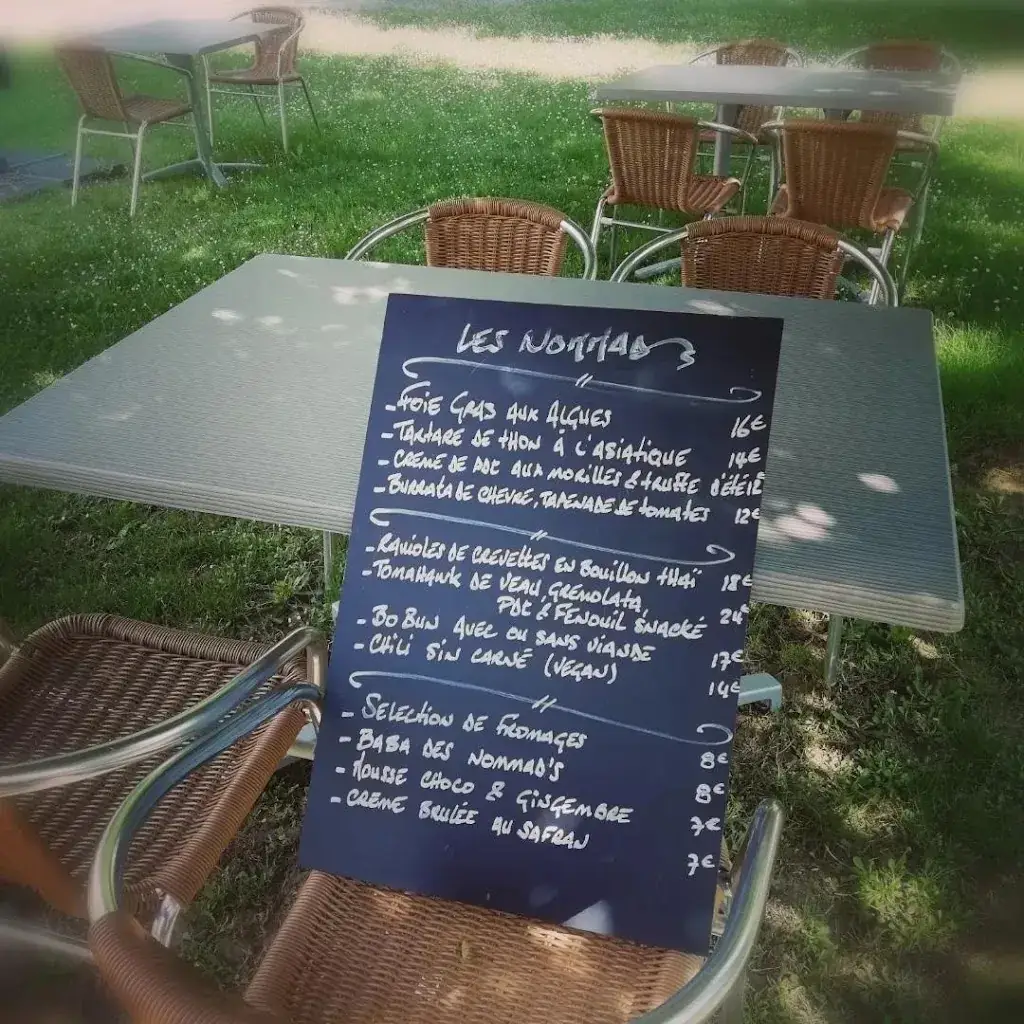 LES NOMMAD'S
- FOIE GRAS AUX ALGUES 16€
- TARTARE DE THON À L'ASIATIQUE 14€
- CRÈME DE PDT AUX MORILLES & TRUFFE D'ÉTÉ
- BURRATA DE CHEVRE, TAPENADE DE TOMATES 12€
- RAVIOLES DE CREVETTES EN BOUILLON THAÏ 18€
- TOMAHAWK DE VEAU, GREMOLATA,
PDT & FENOUIL SNACKÉ 24€
- BO BUN AVEC OU SANS VIANDE 17€
- CHILI SIN CARNÉ (VEGAN) 14€
- SELECTION DE FROMAGES 8€
- BABA DES NOMMAD'S 8€
- MOUSSE CHOCO & GINGEMBRE 7€
- CRÈME BRULÉE AU SAFRAN 7€